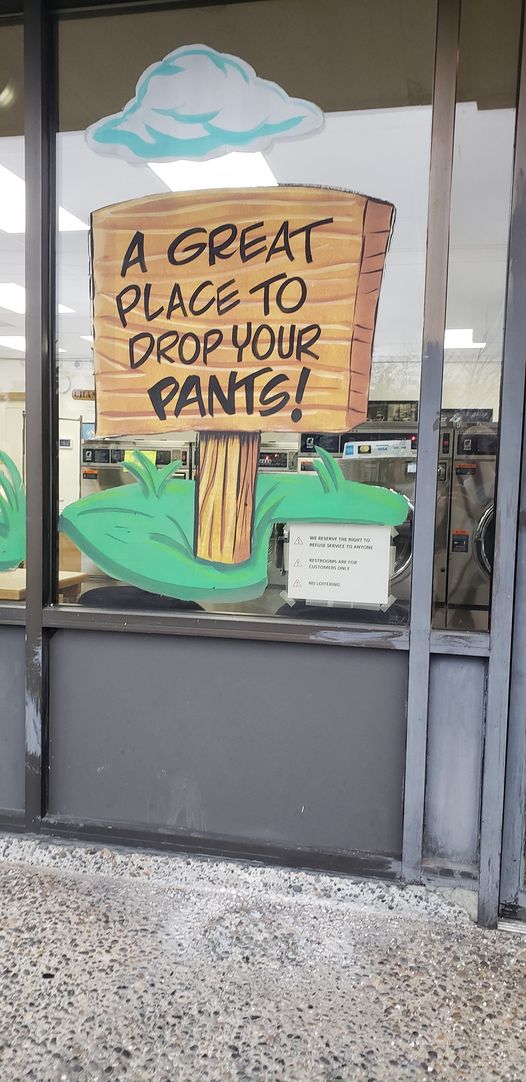 A GREAT
PLACE TO
DROP YOUR
PANTS!
CHAN
VISA
WE RESERVE THE RIGHT TO
REFUSE SERVICE TO ANYONE
RESTROOMS ARE FOR
CUSTOMERS ONLY
NO LOITERING